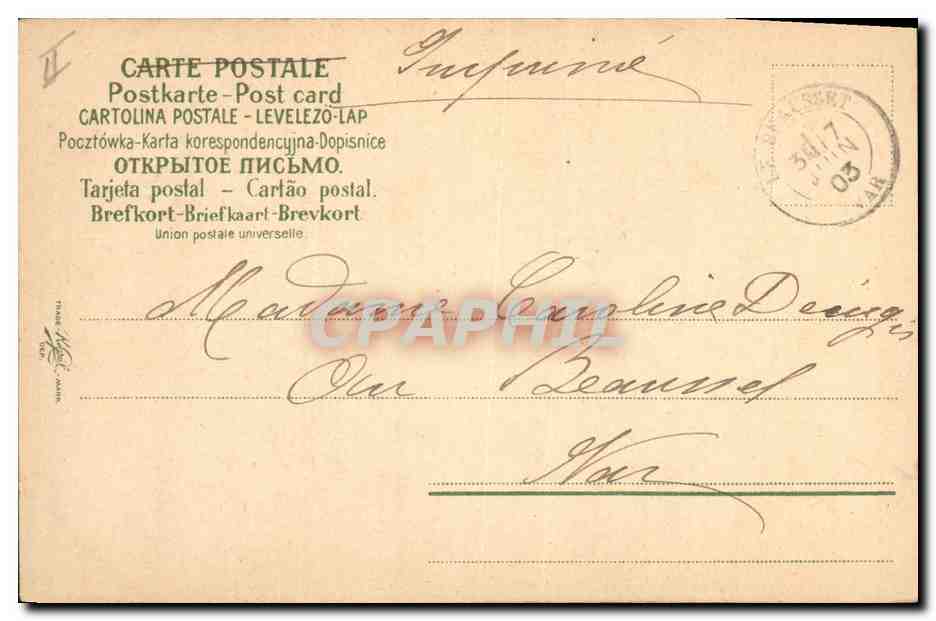 II
CARTE POSTALE
Postkarte-Post card
CARTOLINA POSTALE - LEVELEZÖ-LAP
Pocztówka-Karta korespondencyjna-Dopisnice
ОТКРЫТОЕ ПИСЬМО.
Tarjeta postal - Cartão postal.
Brefkort-Briefkaart-Brevkort
Union postale universelle.
Imprimé
BEAUSSET
3E 17
JUIN
03
VAR
Madame Caroline Decugis
CPAPHIL
Au Beausset
Var
TRADE MARK
DEP.